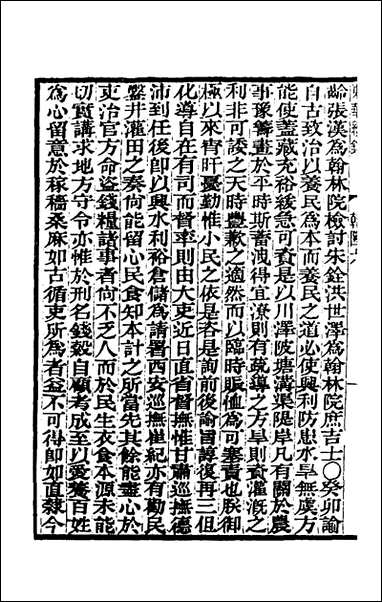 齡張漢爲翰林院檢討朱銓洪世澤爲翰林院庶吉士○癸卯諭
自古致治以養民爲本而養民之道必使興利防患水旱無虞方
能使蓋藏充裕緩急可資是以川澤陂塘溝渠隄岸凡有關於農
事豫籌畫於平時斯蓄洩得宜潦則有疏導之方旱則資灌漑之
利非可諉之天時豐歉之適然而以臨時賑恤爲可塞責也朕御
極以來宵旰憂勤惟小民之依是咨是詢前後諭旨諄復再三但
化導自在有司而督率則由大吏近日直省督撫惟甘肅巡撫德
沛到任後卽以興水利裕倉儲爲請署西安巡撫崔紀亦有勸民
鑿井灌田之奏尚能留心民食知本計之所當先其餘能盡心於
吏治官方命盜錢糧諸事者尚不乏人而於民生衣食本源未能
切實講求地方守令亦惟於刑名錢穀自顧考成至以愛養百姓
爲心留意於稼穡桑麻如古循吏所爲者益不可得卽如直隸今